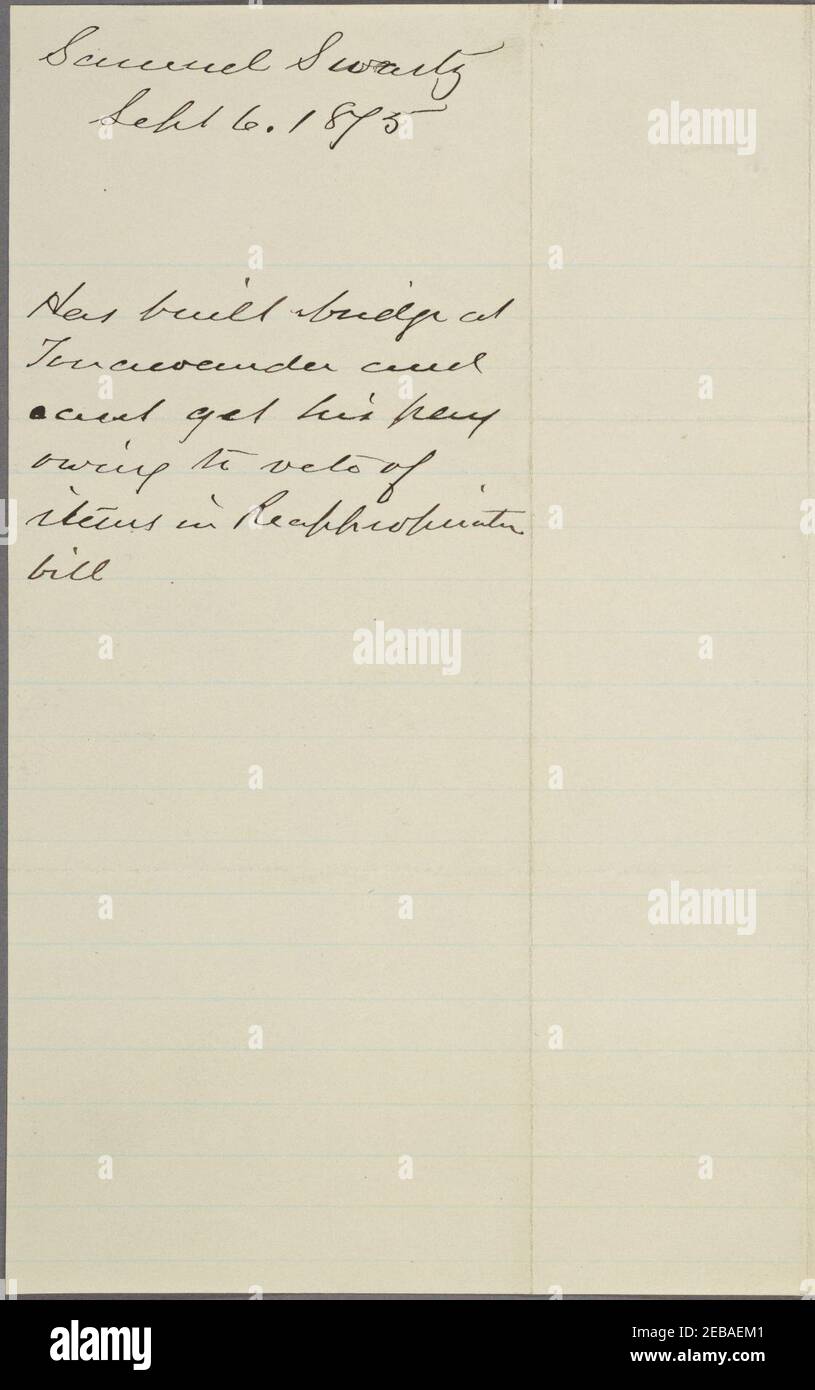 Samuel Swartz
Sept 6. 1875
Has built bridge at
Tonawanda and
cant get his pay
owing to veto of
items in Reappropriation
bill
alamy
alamy
alamy
alamy
Image ID: 2EBAEM1
www.alamy.com